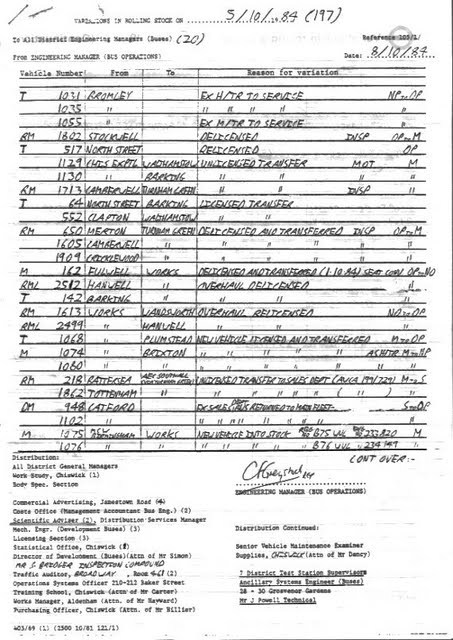 VARIATIONS IN ROLLING STOCK ON 5/10/84 (197)
To All District Engineering Managers (Buses) (20) Reference 105/1/
From ENGINEERING MANAGER (BUS OPERATIONS) Date: 8/10/84
Vehicle Number From To Reason for variation
T 1031 BROMLEY EX H/TR TO SERVICE NP to OP
1035 " " " " " "
1055 " EX M/TR TO SERVICE "
RM 1802 STOCKWELL DELICENSED INSP OP to M
T 517 NORTH STREET RELICENSED OP
1129 CHIS EXPTL WALTHAMSTOW UNLICENSED TRANSFER MOT M
1130 " BARKING " " " "
RM 1713 CAMBERWELL TURNHAM GREEN " " INSP "
T 64 NORTH STREET BARKING LICENSED TRANSFER
552 CLAPTON WALTHAMSTOW " "
RM 650 MERTON TURNHAM GREEN DELICENSED AND TRANSFERRED INSP OP to M
1605 CAMBERWELL " " " " " "
1909 CRICKLEWOOD " " " " " "
M 162 FULWELL WORKS DELICENSED AND TRANSFERRED (1.10.84) SEAT CONV OP to NO
RML 2512 HANWELL " OVERHAUL DELICENSED "
T 142 BARKING " " " "
RM 1613 WORKS WANDSWORTH OVERHAUL RELICENSED NO to OP
RML 2499 " HANWELL " " "
T 1068 " PLUMSTEAD NEW VEHICLE LICENSED AND TRANSFERRED M to OP
M 1074 " BRIXTON " " " " " AS HTR M to NP
1060 " " " " " " " "
RM 218 BATTERSEA AEC SOUTHALL UNLICENSED TRANSFER TO SALES DEPT M to S
1862 TOTTENHAM " " " " " " ( " ) "
DM 948 CATFORD EX SALES DEPT BUS RETURNED TO MAIN FLEET S to OP
1102 " " " " " " " "
M 1075 WORKS NEW VEHICLE INTO STOCK B75 WUL 233820 M
1076 " " " " " B76 WUL 234149 "
CONT OVER:-
Distribution:
All District General Managers
Work Study, Chiswick (1)
Body Spec. Section
ENGINEERING MANAGER (BUS OPERATIONS)
Commercial Advertising, Jamestown Road (4)
Costs Office (Management Accountant Bus Eng.) (2)
Scientific Adviser (2), Distribution Services Manager
Mech. Engr. (Development Buses) (3)
Licensing Section (3)
Statistical Office, Chiswick
Director of Development (Buses)(Attn of Mr Simon)
MR S BRIDGER INSPECTION COMPOUND
Traffic Auditor, BROADWAY, ROOM 461 (2)
Operations Systems Officer 210-212 Baker Street
Training School, Chiswick (Attn of Mr Carter)
Works Manager, Aldenham (Attn. of Mr Hayward)
Purchasing Officer, Chiswick (Attn of Mr Hillier)
Distribution Continued:
Senior Vehicle Maintenance Examiner
Supplies, CHISWICK (Attn of Mr Dancy)
7 District Test Station Supervisors
Ancillary Systems Engineer (Buses)
28 - 30 Grosvenor Gardens
Mr J Powell Technical
403/69 (1) (2500 10/81 121/1)